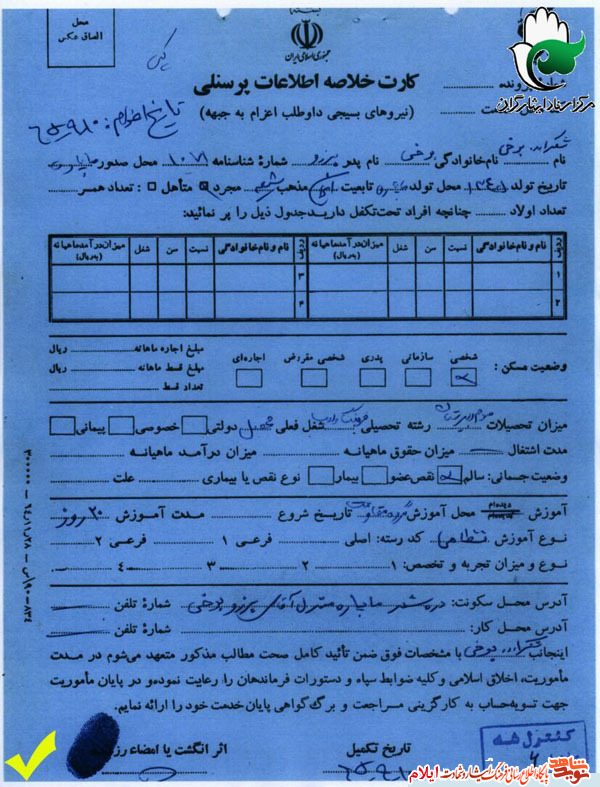 بسمه‌تعالی
محل
الصاق عکس
جمهوری اسلامی ایران
مرکز اسناد ایثارگران
کارت خلاصه اطلاعات پرسنلی
(نیروهای بسیجی داوطلب اعزام به جبهه)
تاریخ اعزام: ۶۵،۹،۱۰
نام شکراله نام‌خانوادگی برخی نام پدر برزو شمارهٔ شناسنامه ۱۰۷۱ محل صدور
تاریخ تولد ۱۳۴۵ محل تولد تابعیت ایران مذهب شیعه مجرد متأهل: تعداد همسر
تعداد اولاد چنانچه افراد تحت‌تکفل دارید جدول ذیل را پر نمائید:
ردیف نام و نام‌خانوادگی نسبت سن شغل میزان درآمد ماهیانه (به‌ریال) ردیف نام و نام‌خانوادگی نسبت سن شغل میزان درآمد ماهیانه (به‌ریال)
۱ ۳
۲ ۴
وضعیت مسکن: شخصی سازمانی پدری شخصی مقروض اجاره‌ای
مبلغ اجاره ماهانه ریال
مبلغ قسط ماهانه ریال
تعداد قسط
میزان تحصیلات سوم دبیرستان رشته تحصیلی فرهنگ و ادب شغل فعلی محصل دولتی خصوصی پیمانی
مدت اشتغال میزان حقوق ماهیانه میزان درآمد ماهیانه
وضعیت‌جسمانی: سالم نقص‌عضو بیمار نوع نقص یا بیماری علت
آموزش دیده‌ام محل آموزش تاریخ شروع مدت آموزش ۲۰ روز
نوع آموزش نظامی کد رسته: اصلی فرعی ۱ فرعی ۲
نوع و میزان تجربه و تخصص: ۱ ۲ ۳ ۴
آدرس محل سکونت: دره شهر منزل آقای برزو برخی شمارهٔ تلفن
آدرس محل کار: شمارهٔ تلفن
اینجانب شکراله برخی با مشخصات فوق ضمن تأئید کامل صحت مطالب مذکور متعهد می‌شوم در مدت
مأموریت، اخلاق اسلامی و کلیه ضوابط سپاه و دستورات فرماندهان را رعایت نموده و در پایان مأموریت
جهت تسویه‌حساب به کارگزینی مراجعت و برگ گواهی پایان خدمت خود را ارائه نمایم.
تاریخ تکمیل
اثر انگشت یا امضاء
۶۵،۹،۱۰
کنترل شد
نوید شاهد پایگاه اطلاع رسانی فرهنگ ایثار و شهادت ایلام